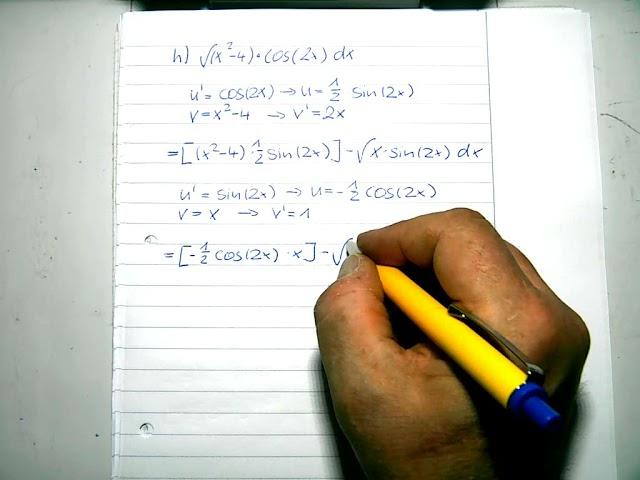 h) ∫(x²-4)·cos(2x) dx
u'=cos(2x) → u=½ sin(2x)
v=x²-4 → v'=2x
=[(x²-4)·½ sin(2x)]-∫x·sin(2x) dx
u'=sin(2x) → u=-½ cos(2x)
v=x → v'=1
=[-½ cos(2x)·x]-∫